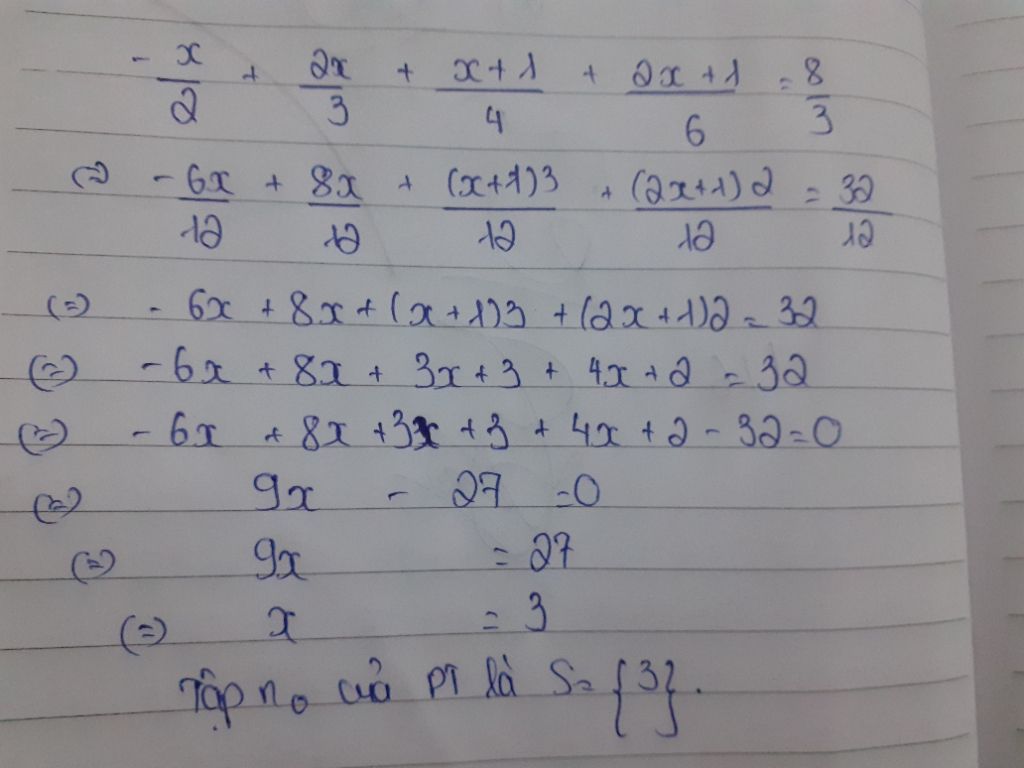 - x/2 + 2x/3 + x+1/4 + 2x+1/6 = 8/3
(=) - 6x/12 + 8x/12 + (x+1)3/12 + (2x+1)2/12 = 32/12
(=) - 6x + 8x + (x+1)3 + (2x+1)2 = 32
(=) - 6x + 8x + 3x + 3 + 4x + 2 = 32
(=) - 6x + 8x + 3x + 3 + 4x + 2 - 32 = 0
(=) 9x - 27 = 0
(=) 9x = 27
(=) x = 3
Tập no của PT là S = {3}.